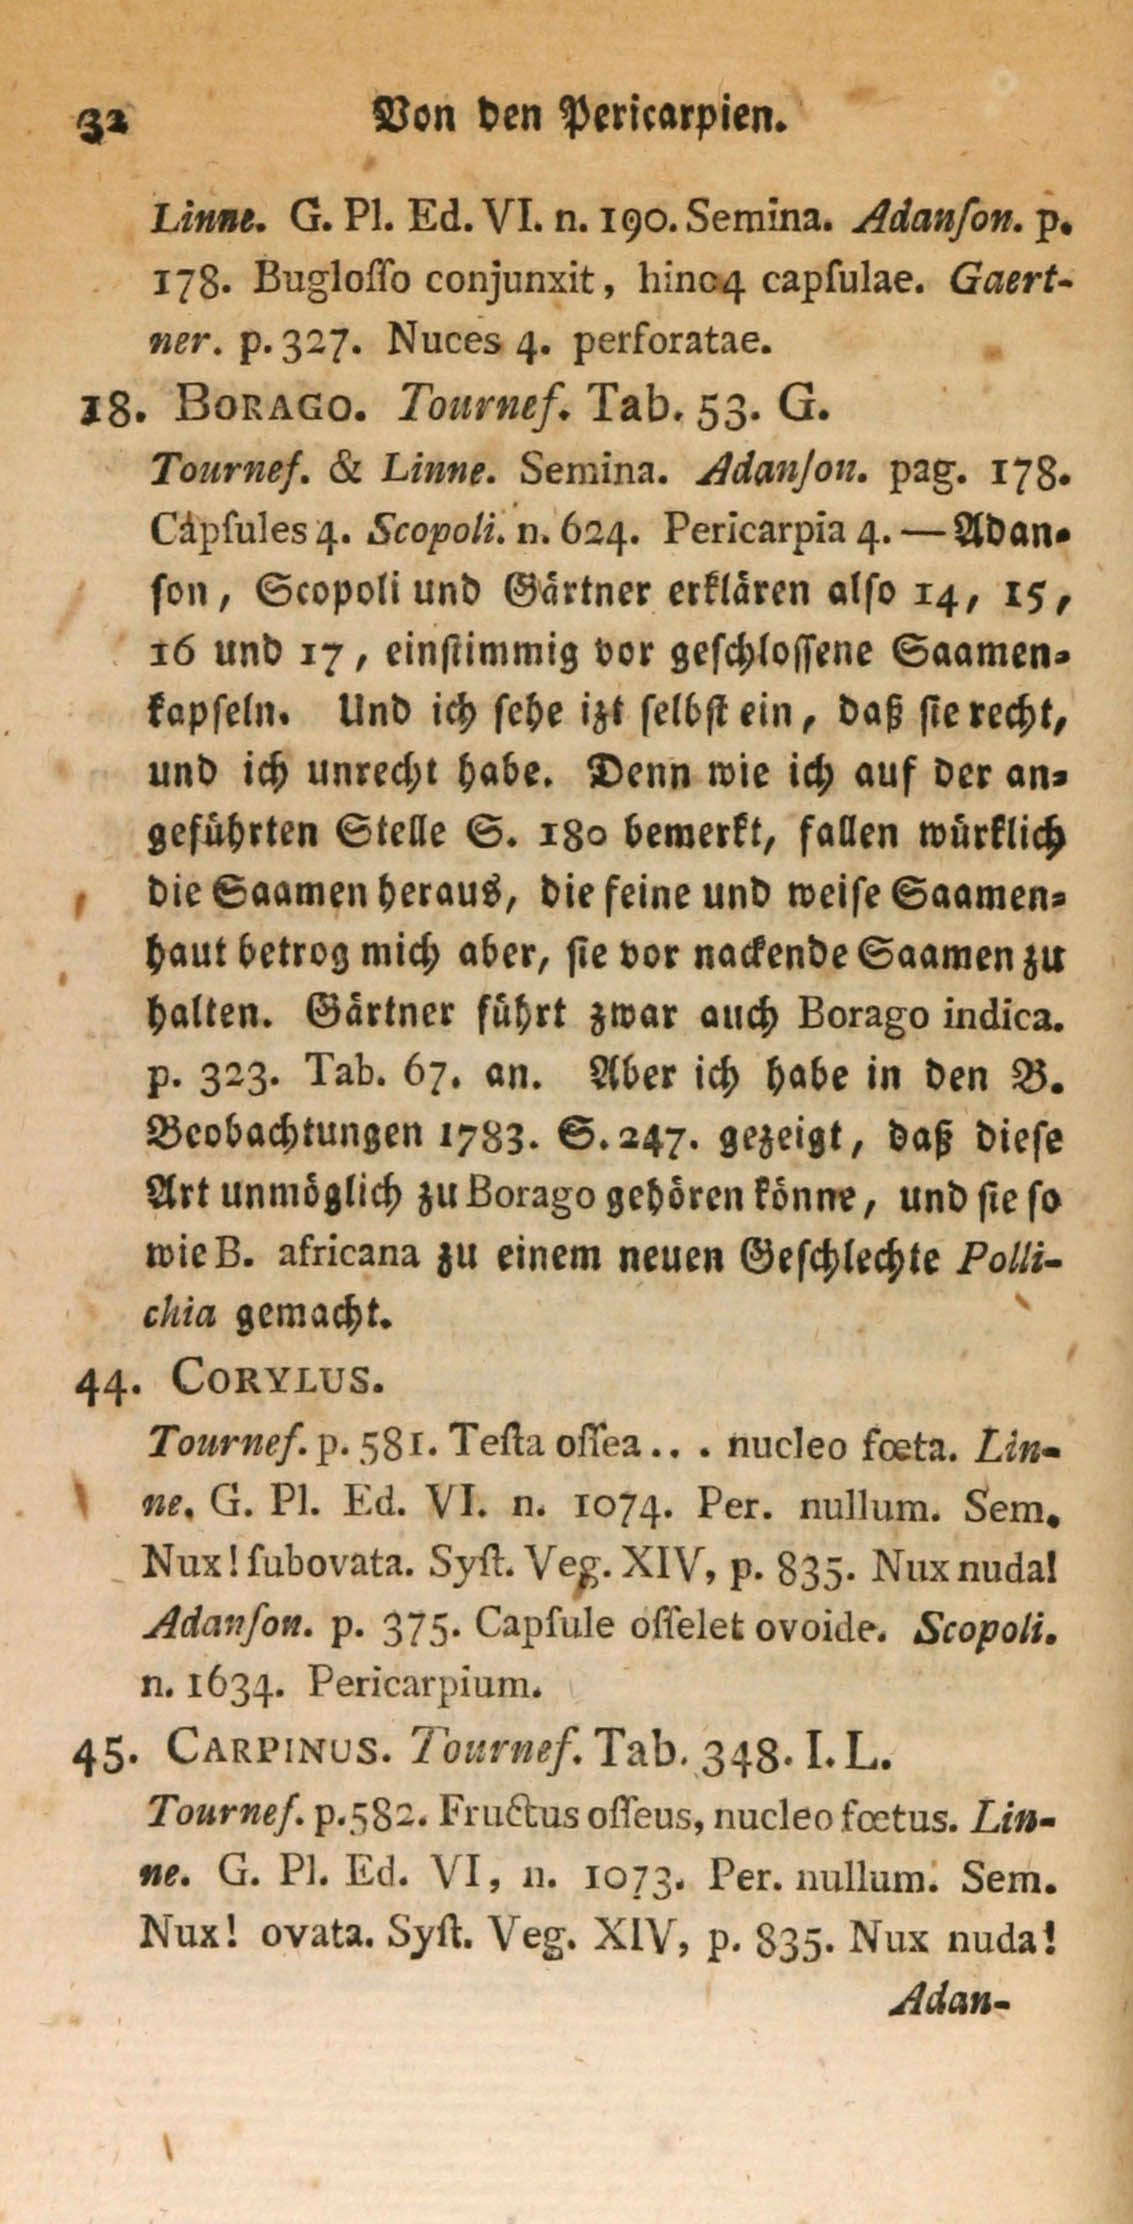 32 Von den Pericarpien.
Linne. G. Pl. Ed. VI. n. 190. Semina. Adanſon. p.
178. Bugloſſo conjunxit, hinc 4 capſulae. Gaert-
ner. p. 327. Nuces 4. perforatae.
18. BORAGO. Tournef. Tab. 53. G.
Tournef. & Linne. Semina. Adanſon. pag. 178.
Capſules 4. Scopoli. n. 624. Pericarpia 4. — Adan-
ſon, Scopoli und Gärtner erklären alſo 14, 15,
16 und 17, einſtimmig vor geſchloſſene Saamen-
kapſeln. Und ich ſehe izt ſelbſt ein, daß ſie recht,
und ich unrecht habe. Denn wie ich auf der an-
geführten Stelle S. 180 bemerkt, fallen würklich
die Saamen heraus, die feine und weiſe Saamen-
haut betrog mich aber, ſie vor nackende Saamen zu
halten. Gärtner führt zwar auch Borago indica.
p. 323. Tab. 67. an. Aber ich habe in den B.
Beobachtungen 1783. S. 247. gezeigt, daß dieſe
Art unmöglich zu Borago gehören könne, und ſie ſo
wie B. africana zu einem neuen Geſchlechte Polli-
chia gemacht.
44. CORYLUS.
Tournef. p. 581. Teſta oſſea . . . nucleo fœta. Lin-
ne. G. Pl. Ed. VI. n. 1074. Per. nullum. Sem.
Nux! ſubovata. Syſt. Veg. XIV, p. 835. Nux nuda!
Adanſon. p. 375. Capſule oſſelet ovoide. Scopoli.
n. 1634. Pericarpium.
45. CARPINUS. Tournef. Tab. 348. I. L.
Tournef. p. 582. Fructus oſſeus, nucleo fœtus. Lin-
ne. G. Pl. Ed. VI, n. 1073. Per. nullum. Sem.
Nux! ovata. Syſt. Veg. XIV, p. 835. Nux nuda!
Adan-